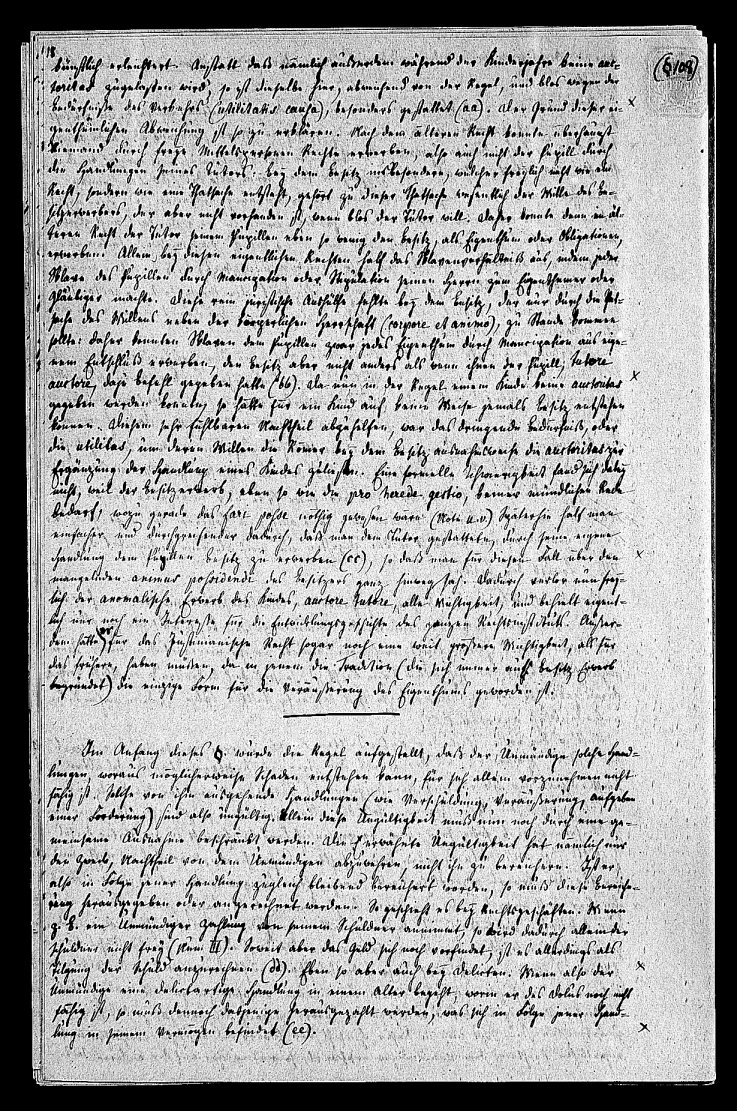 18
künstlich erleichtert. Anstatt daß nämlich außerdem während der Kinderjahre keine auc-
toritas zugelassen wird, so ist dieselbe hier, abweichend von der Regel, und blos wegen der
Bedürfnisse des Verkehrs (utilitatis causa), besonders gestattet (aa). Der Grund dieser ei-
genthümlichen Abweichung ist so zu erklären. Nach dem älteren Recht konnte überhaupt
Niemand durch freye Mittelspersonen Rechte erwerben, also auch nicht der Pupill durch
die Handlungen seines Tutors. Bey dem Besitz insbesondere, welcher freylich nicht wie ein
Recht, sondern wie eine Thatsache entsteht, gehört zu dieser Thatsache wesentlich der Wille des Be-
sitzerwerbers, der aber nicht vorhanden ist, wenn blos der Tutor will. Daher konnte denn im äl-
teren Recht der Tutor seinem Pupillen eben so wenig den Besitz, als Eigenthum oder Obligationen,
erwerben. Allein bey diesen eigentlichen Rechten half das Sklavenverhältniß aus, indem jeder
Sklave des Pupillen durch Mancipation oder Stipulation seinen Herrn zum Eigenthümer oder
Gläubiger machte. Diese rein juristische Aushülfe fehlte bey dem Besitz, der nur durch die That-
sache des Willens neben der körperlichen Herrschaft (corpore et animo), zu Stande kommen
sollte: daher konnten Sklaven dem Pupillen zwar jedes Eigenthum durch Mancipation aus eige-
nem Entschluß erwerben, den Besitz aber nicht anders als wenn ihnen der Pupill, tutore
auctore, dazu Befehl gegeben hatte (bb). Da nun in der Regel einem Kinde keine auctoritas
gegeben werden konnte, so hätte für ein Kind auf keine Weise jemals Besitz entstehen
können. Diesem sehr fühlbaren Nachtheil abzuhelfen, war das dringende Bedürfniß, oder
die utilitas, um deren Willen die Römer bey dem Besitz ausnahmsweise die auctoritas zur
Ergänzung der Handlung eines Kindes zuließen. Eine formelle Schwierigkeit fand sich dabey
nicht, weil der Besitzerwerb, eben so wie die pro herede gestio, keiner mündlichen Rede
bedarf, wozu gerade das fari posse nöthig gewesen wäre (Note u. v.) Späterhin half man
einfacher und durchgreifender dadurch, daß man dem Tutor gestattete, durch seine eigene
Handlung dem Pupillen Besitz zu erwerben (cc), so daß man für diesen Fall über den
mangelnden animus possidendi des Besitzers ganz hinweg sah. Dadurch verlor nun frey-
lich der anomalische Erwerb des Kindes, auctore tutore, alle Wichtigkeit, und behielt eigent-
lich nur noch ein Interesse für die Entwicklungsgeschichte des ganzen Rechtsinstituts. Außer-
dem hätte er für das Justinianische Recht sogar noch eine weit größere Wichtigkeit, als für
das frühere, haben müssen, da in jenem die Tradition (die sich immer auf Besitz Erwerb
begründet) die einzige Form für die Veräußerung des Eigenthums geworden ist.
Im Anfang dieses §. wurde die Regel aufgestellt, daß der Unmündige solche Hand-
lungen, woraus möglicherweise Schaden entstehen kann, für sich allein vorzunehmen nicht
fähig ist. Solche von ihm ausgehende Handlungen (wie Verschuldung, Veräußerung, Aufgeben
einer Forderung) sind also ungültig. Allein diese Ungültigkeit muß nun noch durch eine ge-
meinsame Ausnahme beschränkt werden. Die erwähnte Ungültigkeit hat nämlich nur
den Zweck, Nachtheil von dem Unmündigen abzuwehren, nicht ihn zu bereichern. Ist er
also in Folge jener Handlung zugleich bleibend bereichert worden, so muß diese Bereiche-
rung herausgegeben oder angerechnet werden. So geschieht es bey Rechtsgeschäften. Wenn
z. B. ein Unmündiger Zahlung von seinem Schuldner annimmt, so wird dadurch allein der
Schuldner nicht frey (Num. III). Soweit aber das Geld sich noch vorfindet, ist es allerdings als
Tilgung der Schuld anzurechnen (dd). Eben so aber auch bey Delicten. Wenn also der
Unmündige eine delictartige Handlung in einem Alter begeht, worin er des Dolus noch nicht
fähig ist, so muß dennoch dasjenige herausgezahlt werden, was sich in Folge jener Hand-
lung in seinem Vermögen befindet (ee).